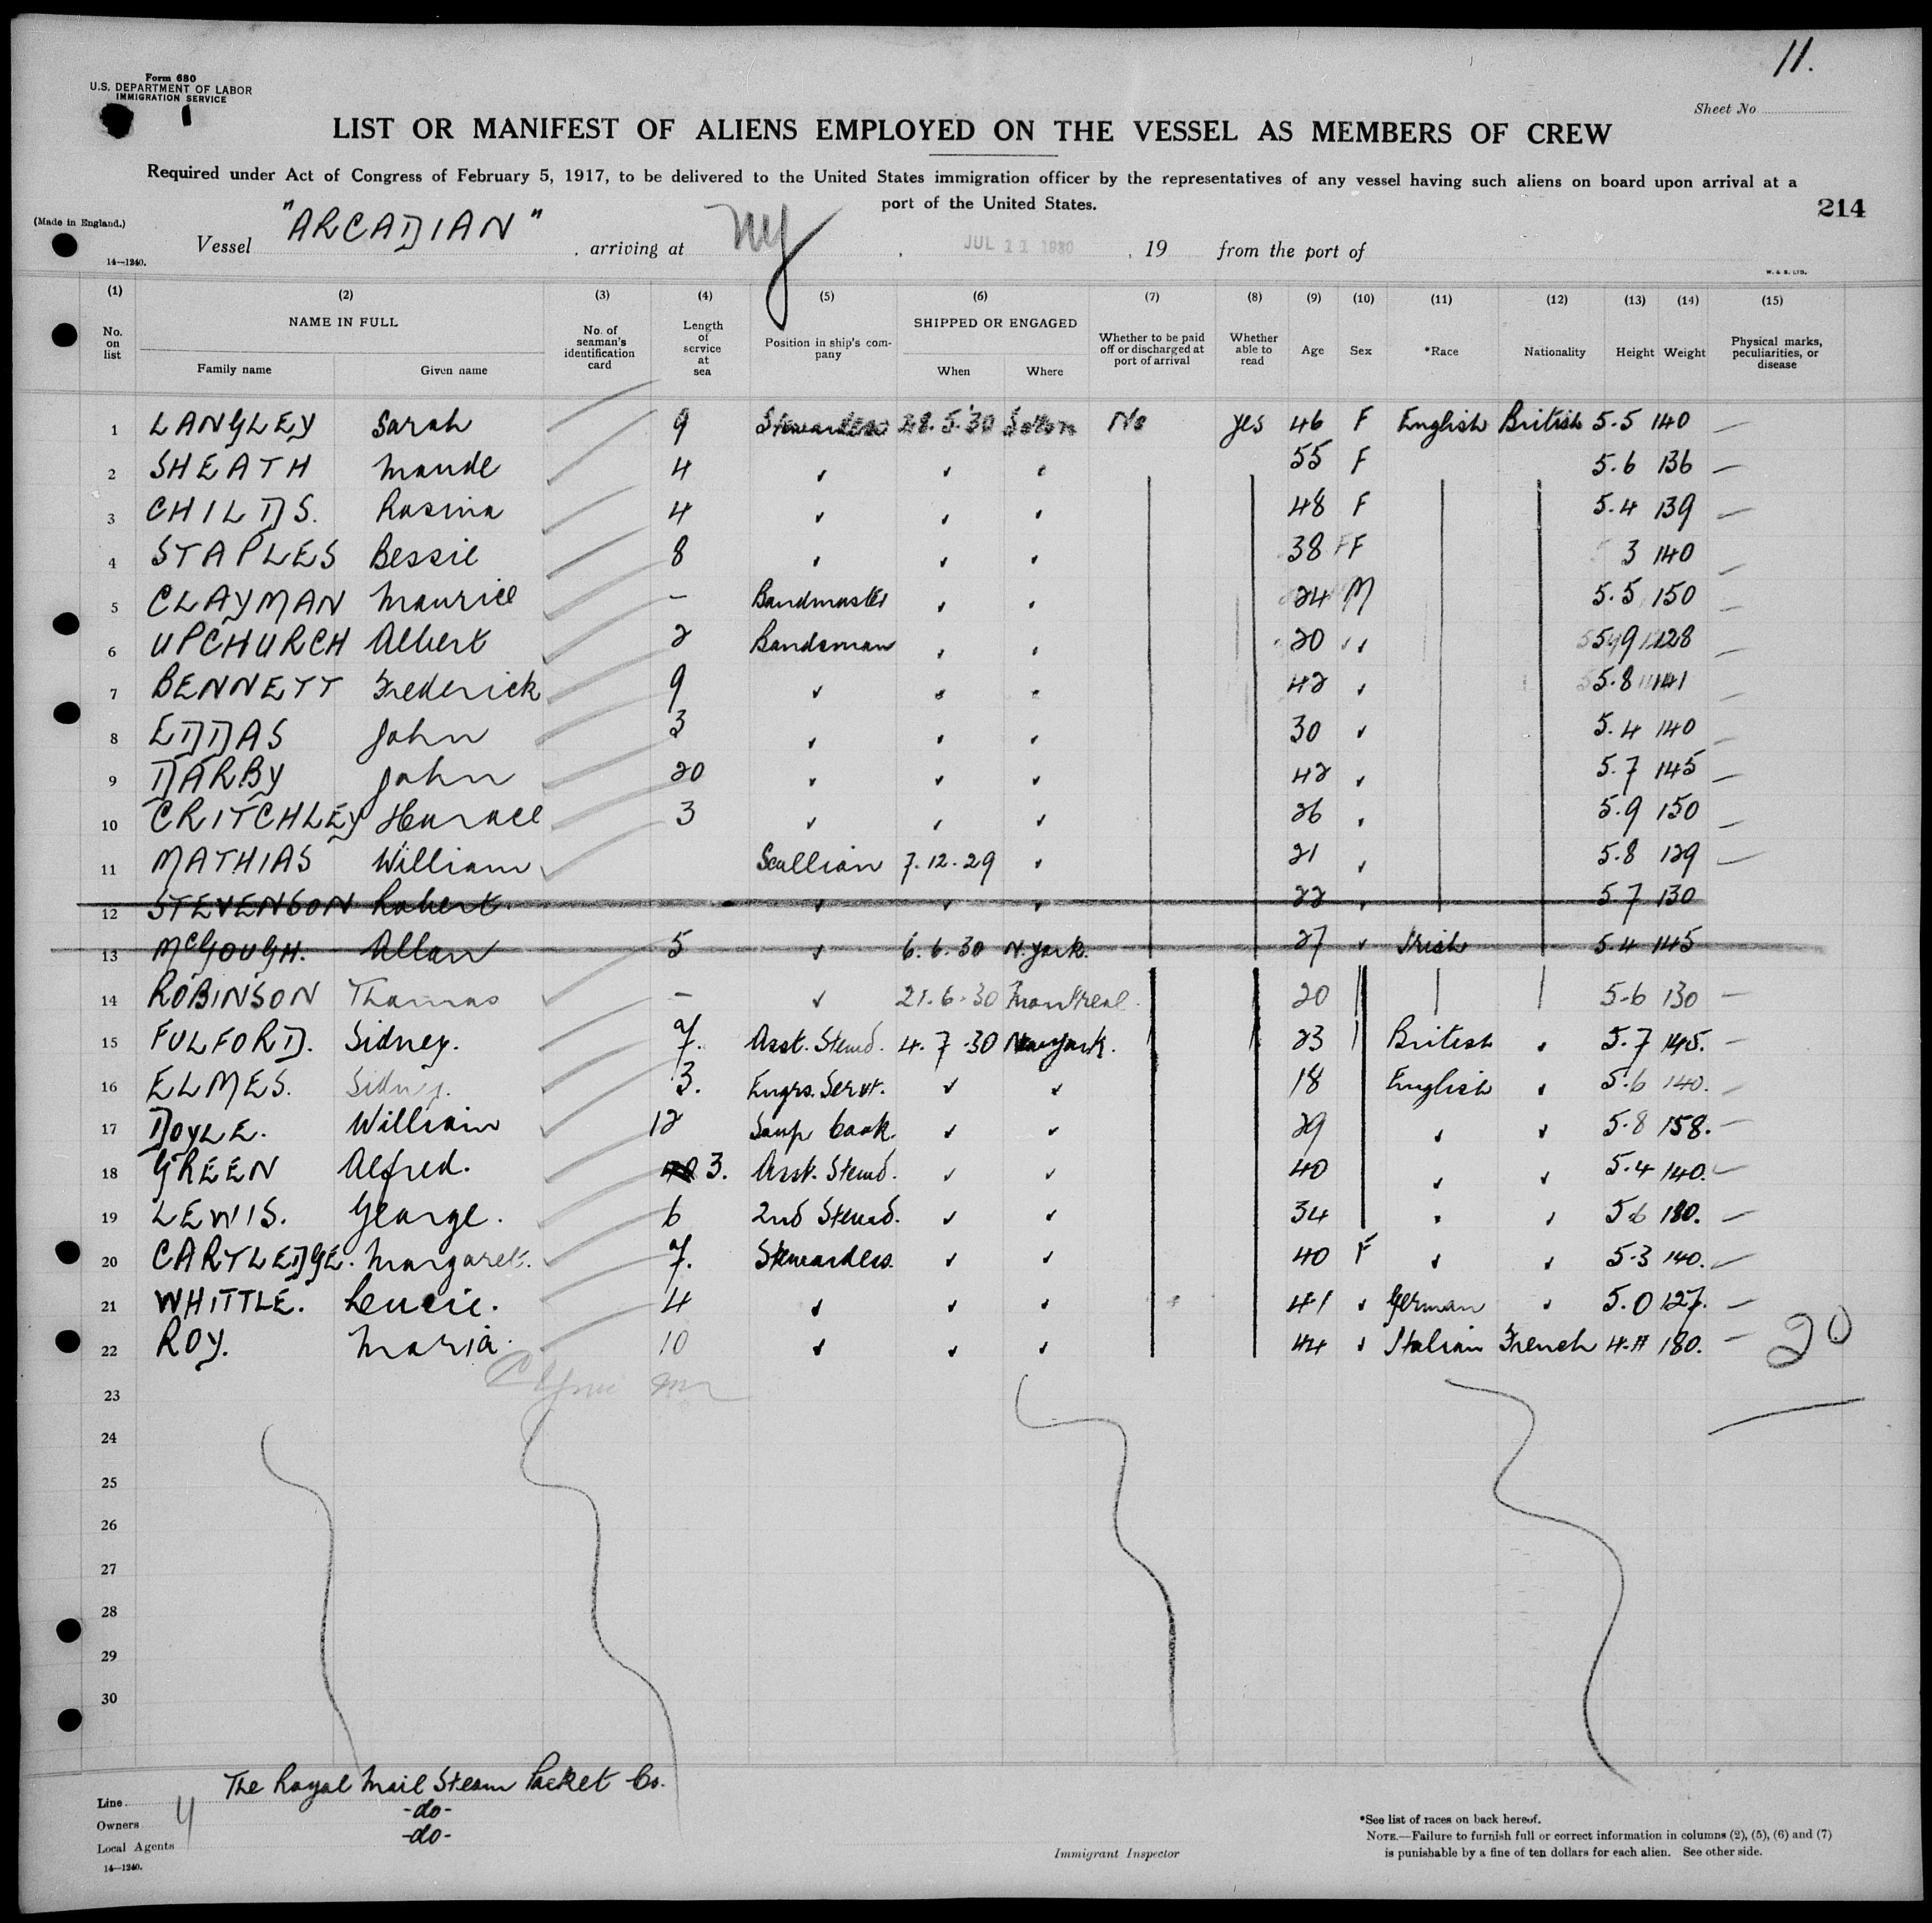 11.
Form 680
U.S. DEPARTMENT OF LABOR
IMMIGRATION SERVICE
Sheet No
LIST OR MANIFEST OF ALIENS EMPLOYED ON THE VESSEL AS MEMBERS OF CREW
Required under Act of Congress of February 5, 1917, to be delivered to the United States immigration officer by the representatives of any vessel having such aliens on board upon arrival at a
port of the United States.
214
(Made in England.)
Vessel "ARCADIAN", arriving at NY, JUL 11 1930, 19 from the port of
14—1240.
W. & S. LTD.
(1) (2) (3) (4) (5) (6) (7) (8) (9) (10) (11) (12) (13) (14) (15)
No. on list NAME IN FULL Family name Given name No. of seaman's identification card Length of service at sea Position in ship's company SHIPPED OR ENGAGED When Where Whether to be paid off or discharged at port of arrival Whether able to read Age Sex *Race Nationality Height Weight Physical marks, peculiarities, or disease
1 LANGLEY Sarah 9 Stewardess 28.5.30 Soton No yes 46 F English British 5.5 140 —
2 SHEATH Maude 4 ✓ ✓ ✓ 55 F 5.6 136 —
3 CHILDS. Rosina 4 ✓ ✓ ✓ 48 F 5.4 139 —
4 STAPLES Bessie 8 ✓ ✓ ✓ 38 F 3 140 —
5 CLAYMAN Maurice - Bandmaster ✓ ✓ 24 M 5.5 150 —
6 UPCHURCH Albert 2 Bandsman ✓ ✓ 20 ✓ 5.9 128 —
7 BENNETT Frederick 9 ✓ ✓ ✓ 42 ✓ 5.8 141 —
8 EDDAS John 3 ✓ ✓ ✓ 30 ✓ 5.4 140 —
9 DARBY John 20 ✓ ✓ ✓ 42 ✓ 5.7 145 —
10 CRITCHLEY Horace 3 ✓ ✓ ✓ 26 ✓ 5.9 150 —
11 MATHIAS William Scullion 7.12.29 ✓ 21 ✓ 5.8 129 —
12 STEVENSON Robert - ✓ ✓ ✓ 22 ✓ 5.7 130
13 McGOUGH. Allan 5 ✓ 6.6.30 N.York. 27 ✓ Irish 5.4 145
14 ROBINSON Thomas — ✓ 21.6.30 Montreal. 20 5-6 130 —
15 FULFORD. Sidney. 7. Asst. Stewd. 4.7.30 New York. 23 British ✓ 5.7 145. —
16 ELMES. Sidney. 3. Engrs. Servt. ✓ ✓ 18 English ✓ 5.6 140. —
17 DOYLE. William 12 Soup Cook. ✓ ✓ 29 ✓ ✓ 5.8 158. —
18 GREEN Alfred. 3. Asst. Stewd. ✓ ✓ 40 ✓ ✓ 5.4 140. —
19 LEWIS. George. 6 2nd Steward. ✓ ✓ 34 ✓ ✓ 5.6 180. —
20 CARTLEDGE. Margaret. 7. Stewardess. ✓ ✓ 40 F ✓ ✓ 5.3 140. —
21 WHITTLE. Lucie. 4 ✓ ✓ ✓ 41 ✓ German ✓ 5.0 127. —
22 ROY. Maria. 10 ✓ ✓ ✓ 44 ✓ Italian French 4.11 180. —
20
23
24
25
26
27
28
29
30
Line The Royal Mail Steam Packet Co.
Owners -do-
Local Agents -do-
14—1240.
Immigrant Inspector
*See list of races on back hereof.
NOTE.—Failure to furnish full or correct information in columns (2), (5), (6) and (7)
is punishable by a fine of ten dollars for each alien. See other side.